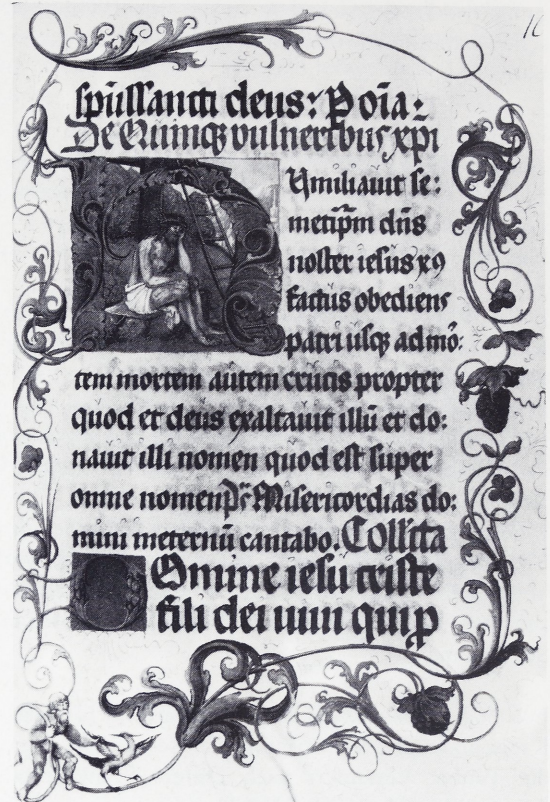 16
sp̃ussancti deus: P oĩa:
De Quinqꝫ vulneribus xp̃i
Humiliauit se:
metip̃m dñs
noster iesus xꝰ
factus obediens
patri usqꝫ ad mõ:
tem mortem autem crucis propter
quod et deus exaltauit illũ et do:
nauit illi nomen quod est super
omne nomen Pš Misericordias do:
mini ineternũ cantabo. Coll̃cta
Domine iesu criste
fili dei uiui qui ꝑ